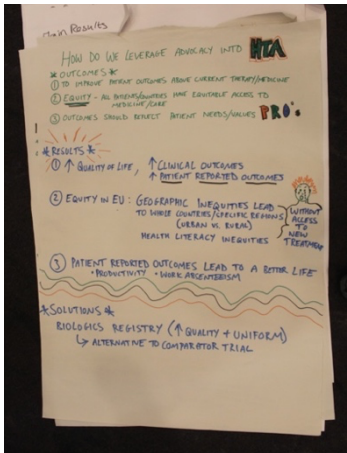 Main Results
HOW DO WE LEVERAGE ADVOCACY INTO HTA
* OUTCOMES *
① TO IMPROVE PATIENT OUTCOMES ABOVE CURRENT THERAPY/MEDICINE
② EQUITY - ALL PATIENTS/COUNTRIES HAVE EQUITABLE ACCESS TO
MEDICINE/CARE
③ OUTCOMES SHOULD REFLECT PATIENT NEEDS/VALUES PRO's
* RESULTS *
① ↑ QUALITY OF LIFE, ↑ CLINICAL OUTCOMES
↑ PATIENT REPORTED OUTCOMES
② EQUITY IN EU: GEOGRAPHIC INEQUITIES LEAD
TO WHOLE COUNTRIES/SPECIFIC REGIONS
(URBAN VS. RURAL)
HEALTH LITERACY INEQUITIES
WITHOUT
ACCESS
TO
NEW
TREATMENT
③ PATIENT REPORTED OUTCOMES LEAD TO A BETTER LIFE
• PRODUCTIVITY • WORK ABSENTEEISM
* SOLUTIONS *
BIOLOGICS REGISTRY (↑ QUALITY + UNIFORM)
↳ ALTERNATIVE TO COMPARATOR TRIAL